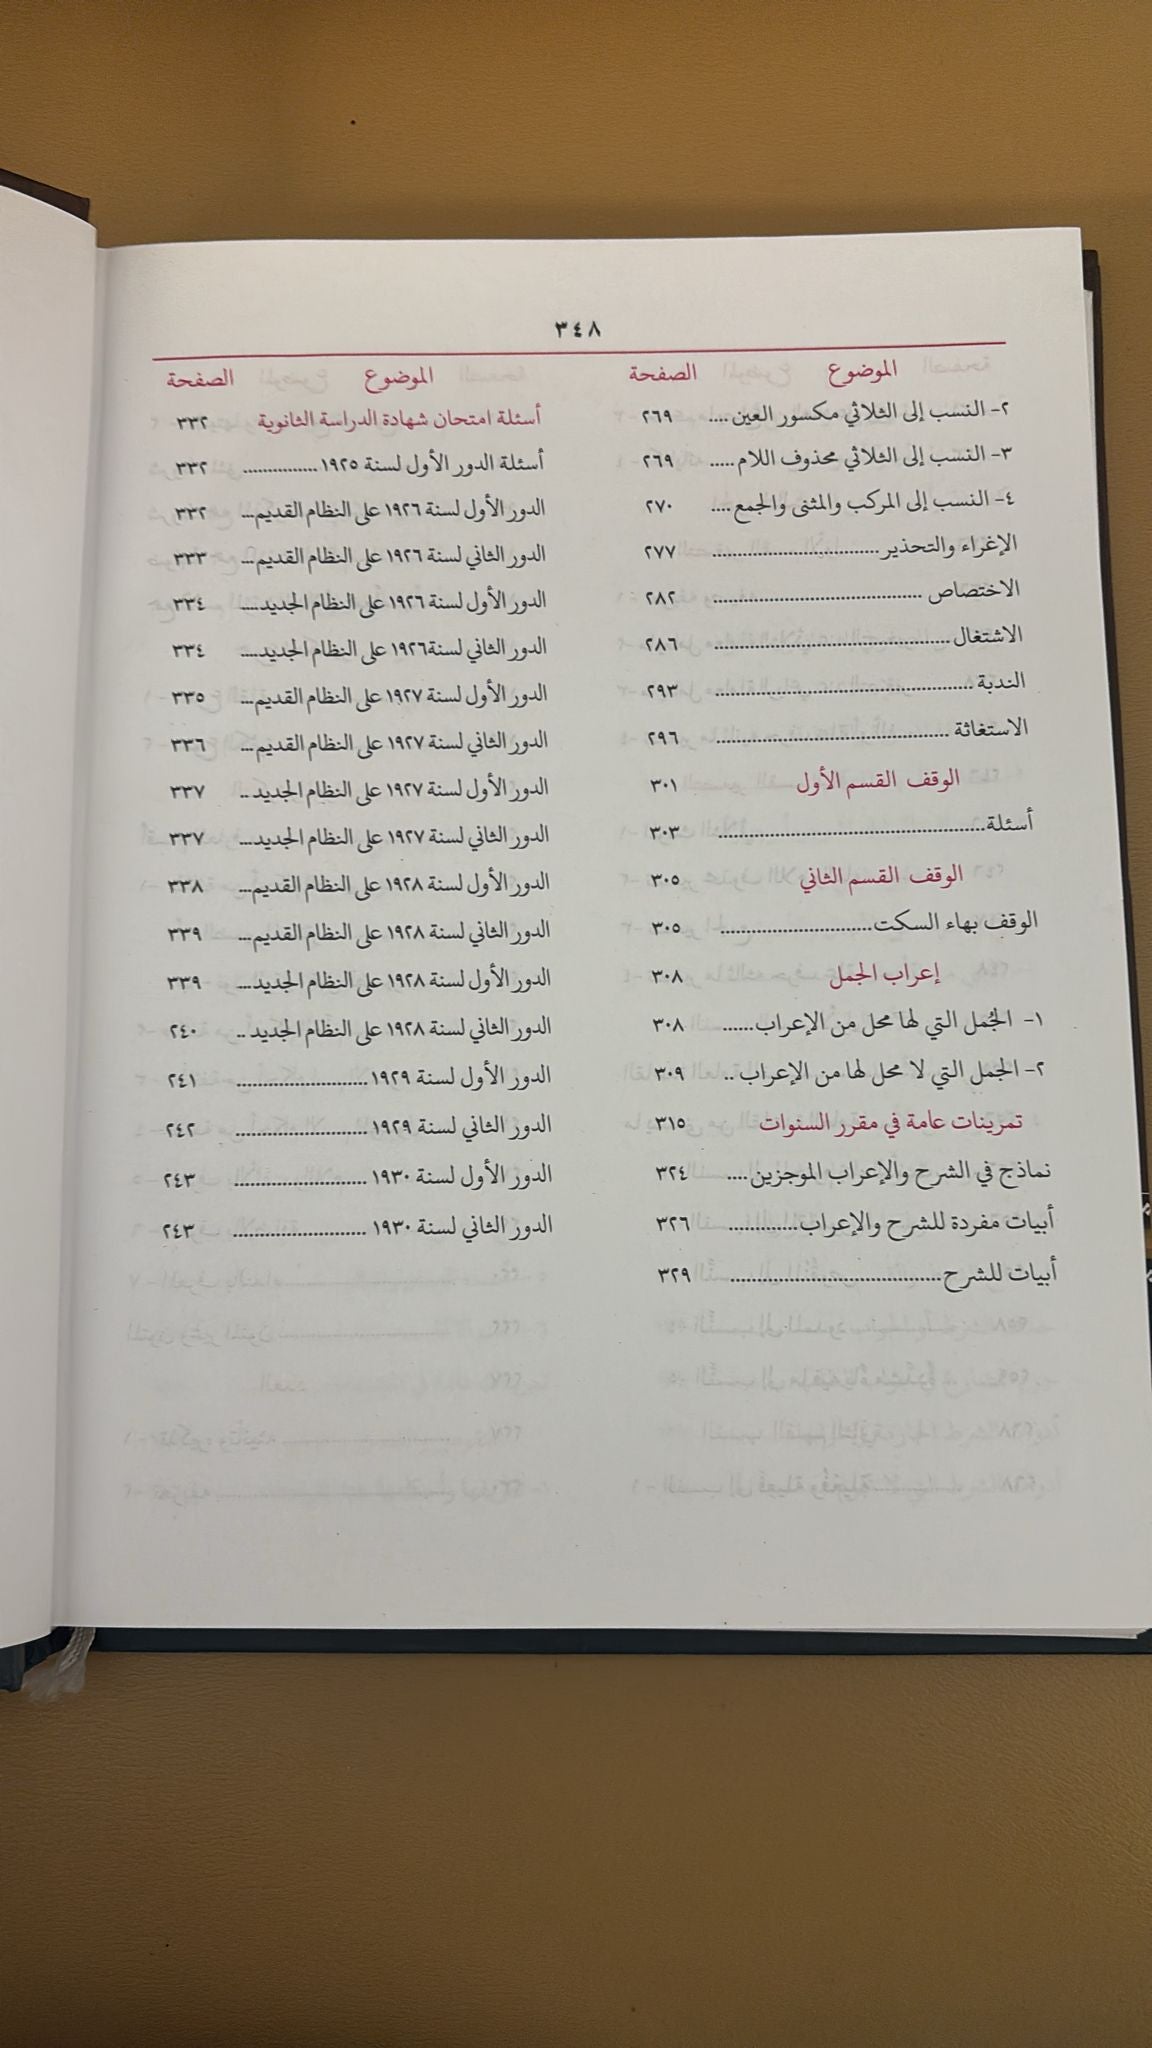 ٣٤٨
الموضوع الصفحة
٢- النسب إلى الثلاثي مكسور العين .... ٢٦٩
٣- النسب إلى الثلاثي محذوف اللام ..... ٢٦٩
٤- النسب إلى المركب والمثنى والجمع .... ٢٧٠
الإغراء والتحذير ................................ ٢٧٧
الاختصاص ........................................ ٢٨٢
الاشتغال ............................................. ٢٨٦
الندبة ................................................. ٢٩٣
الاستغاثة ............................................ ٢٩٦
الوقف القسم الأول ٣٠١
أسئلة .................................................. ٣٠٣
الوقف القسم الثاني ٣٠٥
الوقف بهاء السكت ............................. ٣٠٥
إعراب الجمل ٣٠٨
١- الجُمل التي لها محل من الإعراب ...... ٣٠٨
٢- الجمل التي لا محل لها من الإعراب .. ٣٠٩
تمرينات عامة في مقرر السنوات ٣١٥
نماذج في الشرح والإعراب الموجزين .... ٣٢٤
أبيات مفردة للشرح والإعراب ............. ٣٢٦
أبيات للشرح ........................................ ٣٢٩
الموضوع الصفحة
أسئلة امتحان شهادة الدراسة الثانوية ٣٣٢
أسئلة الدور الأول لسنة ١٩٢٥ ............... ٣٣٢
الدور الأول لسنة ١٩٢٦ على النظام القديم ... ٣٣٢
الدور الثاني لسنة ١٩٢٦ على النظام القديم ... ٣٣٣
الدور الأول لسنة ١٩٢٦ على النظام الجديد .... ٣٣٤
الدور الثاني لسنة١٩٢٦ على النظام الجديد .... ٣٣٤
الدور الأول لسنة ١٩٢٧ على النظام القديم ... ٣٣٥
الدور الثاني لسنة ١٩٢٧ على النظام القديم ... ٣٣٦
الدور الأول لسنة ١٩٢٧ على النظام الجديد .. ٣٣٧
الدور الثاني لسنة ١٩٢٧ على النظام الجديد ... ٣٣٧
الدور الأول لسنة ١٩٢٨ على النظام القديم ... ٣٣٨
الدور الثاني لسنة ١٩٢٨ على النظام القديم ... ٣٣٩
الدور الأول لسنة ١٩٢٨ على النظام الجديد ... ٣٣٩
الدور الثاني لسنة ١٩٢٨ على النظام الجديد .. ٢٤٠
الدور الأول لسنة ١٩٢٩ .......................... ٢٤١
الدور الثاني لسنة ١٩٢٩ .......................... ٢٤٢
الدور الأول لسنة ١٩٣٠ .......................... ٢٤٣
الدور الثاني لسنة ١٩٣٠ .......................... ٢٤٣